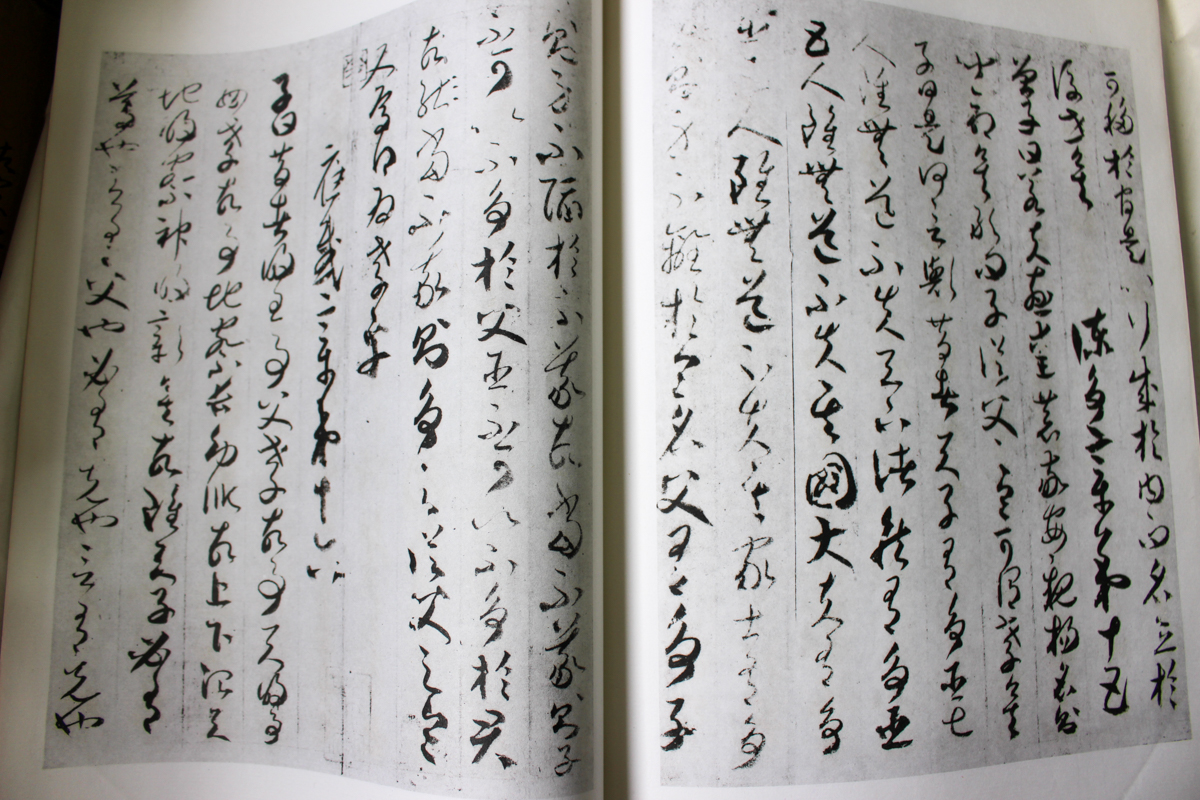 可移於官是以行成於内而名立於
後世矣
諫爭章第十五
曾子曰若夫慈愛恭敬安親揚名則
聞命矣敢問子從父之令可謂孝矣
子曰是何言與昔者天子有爭臣七
人雖無道不失天下諸侯有爭臣
五人雖無道不失其國大夫有爭
臣三人雖無道不失其家士有爭
友則身不離於令名父有爭子
則身不陷於不義故當不義則子
不可以不爭於父臣不可以不爭於君
故當不義則爭之從父之令
又焉得為孝乎
應感章第十六
子曰昔者明王事父孝故事天明事
母孝故事地察長幼順故上下治天
地明察神明彰矣故雖天子必有
尊也言有父也必有先也言有兄也